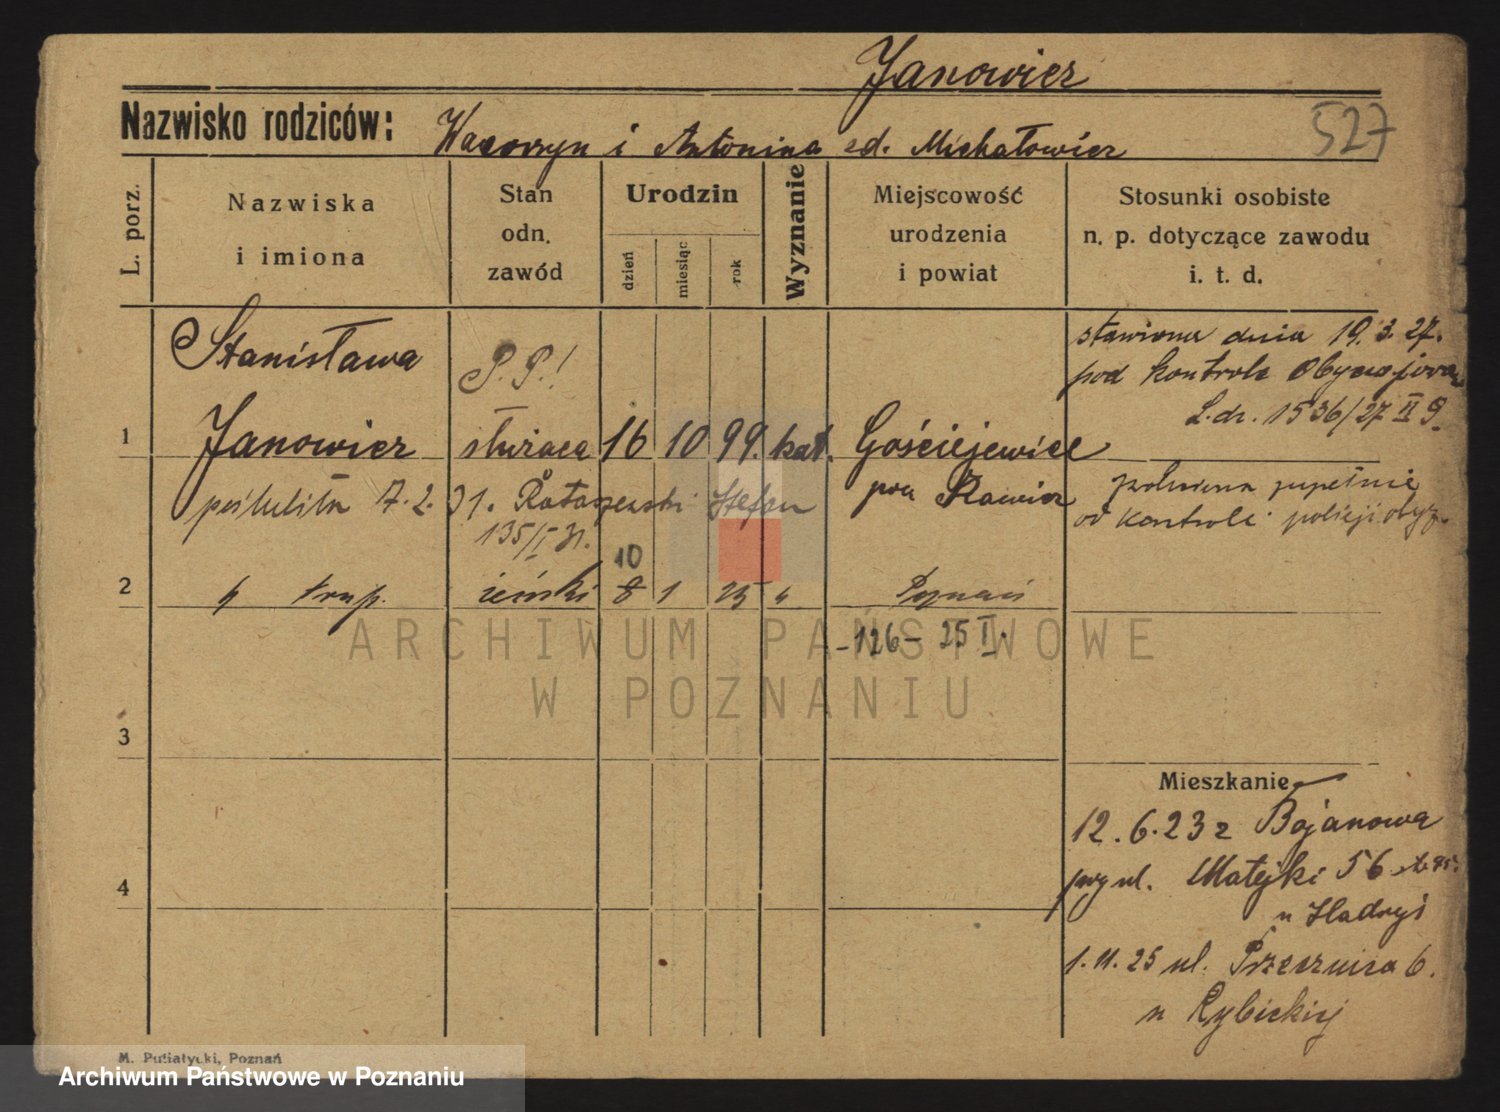 Janowicz
Nazwisko rodziców: Wawrzyn i Antonina zd. Michałowicz
527
L. porz.
Nazwiska
i imiona
Stan
odn.
zawód
Urodzin
dzień
miesiąc
rok
Wyznanie
Miejscowość
urodzenia
i powiat
Stosunki osobiste
n. p. dotyczące zawodu
i. t. d.
Stanisława
P. P.!
stawiona dnia 19. 3. 27.
pod kontrolę Obyczajową
L. dz. 1536/27 II
1 Janowicz służąca 16 10 99. kat. Gościejewice
pow Rawicz
31. Ratajzewski Stefan
135/I 31.
zwolniona zupełnie
od kontroli policji obycz.
10
2 żeński 8 1 25 " Poznań
-126- 25 I.
ARCHIWUM PAŃSTWOWE
W POZNANIU
3
Mieszkanie
12. 6. 23 z Bojanowa
przy ul. Matejki 56
u
4
1. 11. 25 ul. Przecznica 6.
u Rybickiej
M. Putiatycki, Poznań
Archiwum Państwowe w Poznaniu